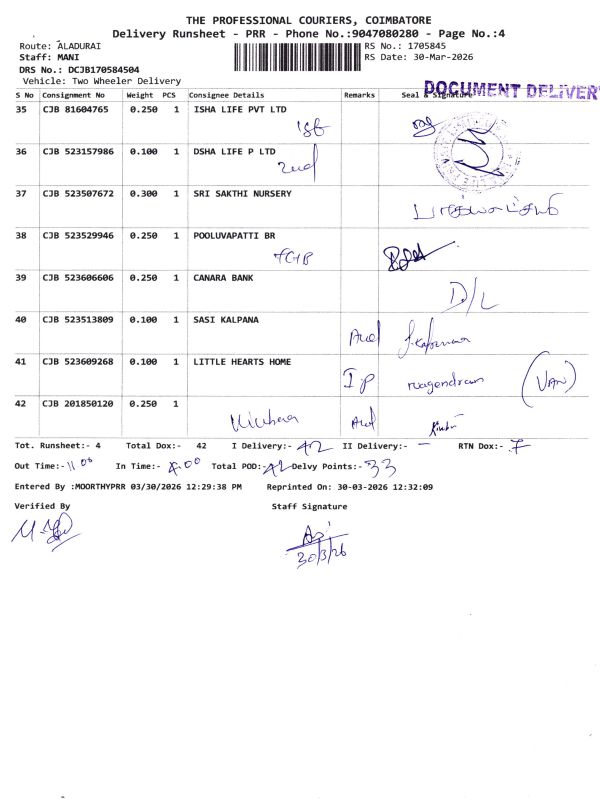 THE PROFESSIONAL COURIERS, COIMBATORE
Delivery Runsheet - PRR - Phone No.:9047080280 - Page No.:4
Route: ALADURAI
RS No.: 1705845
Staff: MANI
RS Date: 30-Mar-2026
DRS No.: DCJB170584504
Vehicle: Two Wheeler Delivery
DOCUMENT DELIVER
S No Consignment No Weight PCS Consignee Details Remarks Seal & Signature
35 CJB 81604765 0.250 1 ISHA LIFE PVT LTD
36 CJB 523157986 0.100 1 DSHA LIFE P LTD
2nd
37 CJB 523507672 0.300 1 SRI SAKTHI NURSERY
38 CJB 523529946 0.250 1 POOLUVAPATTI BR
39 CJB 523606606 0.250 1 CANARA BANK
D/L
40 CJB 523513809 0.100 1 SASI KALPANA
41 CJB 523609268 0.100 1 LITTLE HEARTS HOME
nagendran (VAN)
42 CJB 201850120 0.250 1
Tot. Runsheet:- 4 Total Dox:- 42 I Delivery:- 42 II Delivery:- — RTN Dox:- 7
Out Time:- 11 00 In Time:- Total POD:- 42 Delvy Points:- 33
Entered By :MOORTHYPRR 03/30/2026 12:29:38 PM Reprinted On: 30-03-2026 12:32:09
Verified By Staff Signature
30/3/26